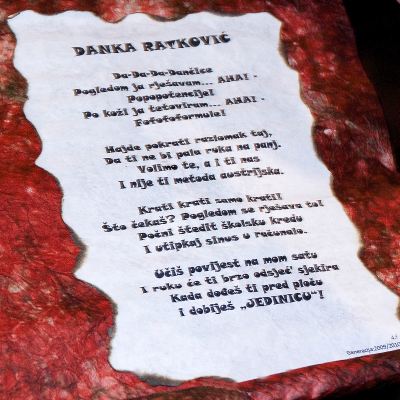 DANKA RATKOVIĆ
Da-Da-Da-Dančice
Pogledom ja rješavam... AHA! -
Popopotencije!
Po koži ja tetoviram... AHA! -
Fofofoformule!
Hajde pokrati razlomak taj,
Da ti ne bi pala ruka na panj.
Volimo te, a i ti nas
I nije ti metoda austrijska.
Krati krati samo krati!
Što čekaš? Pogledom se rješava to!
Počni štedit školsku kredu
I utipkaj sinus u računalo.
Učiš povijest na mom satu
I ruku će ti brzo odsjeć' sjekira
Kada dođeš ti pred ploču
I dobiješ „JEDINICU“!
4.f
Generacija 2009/2010